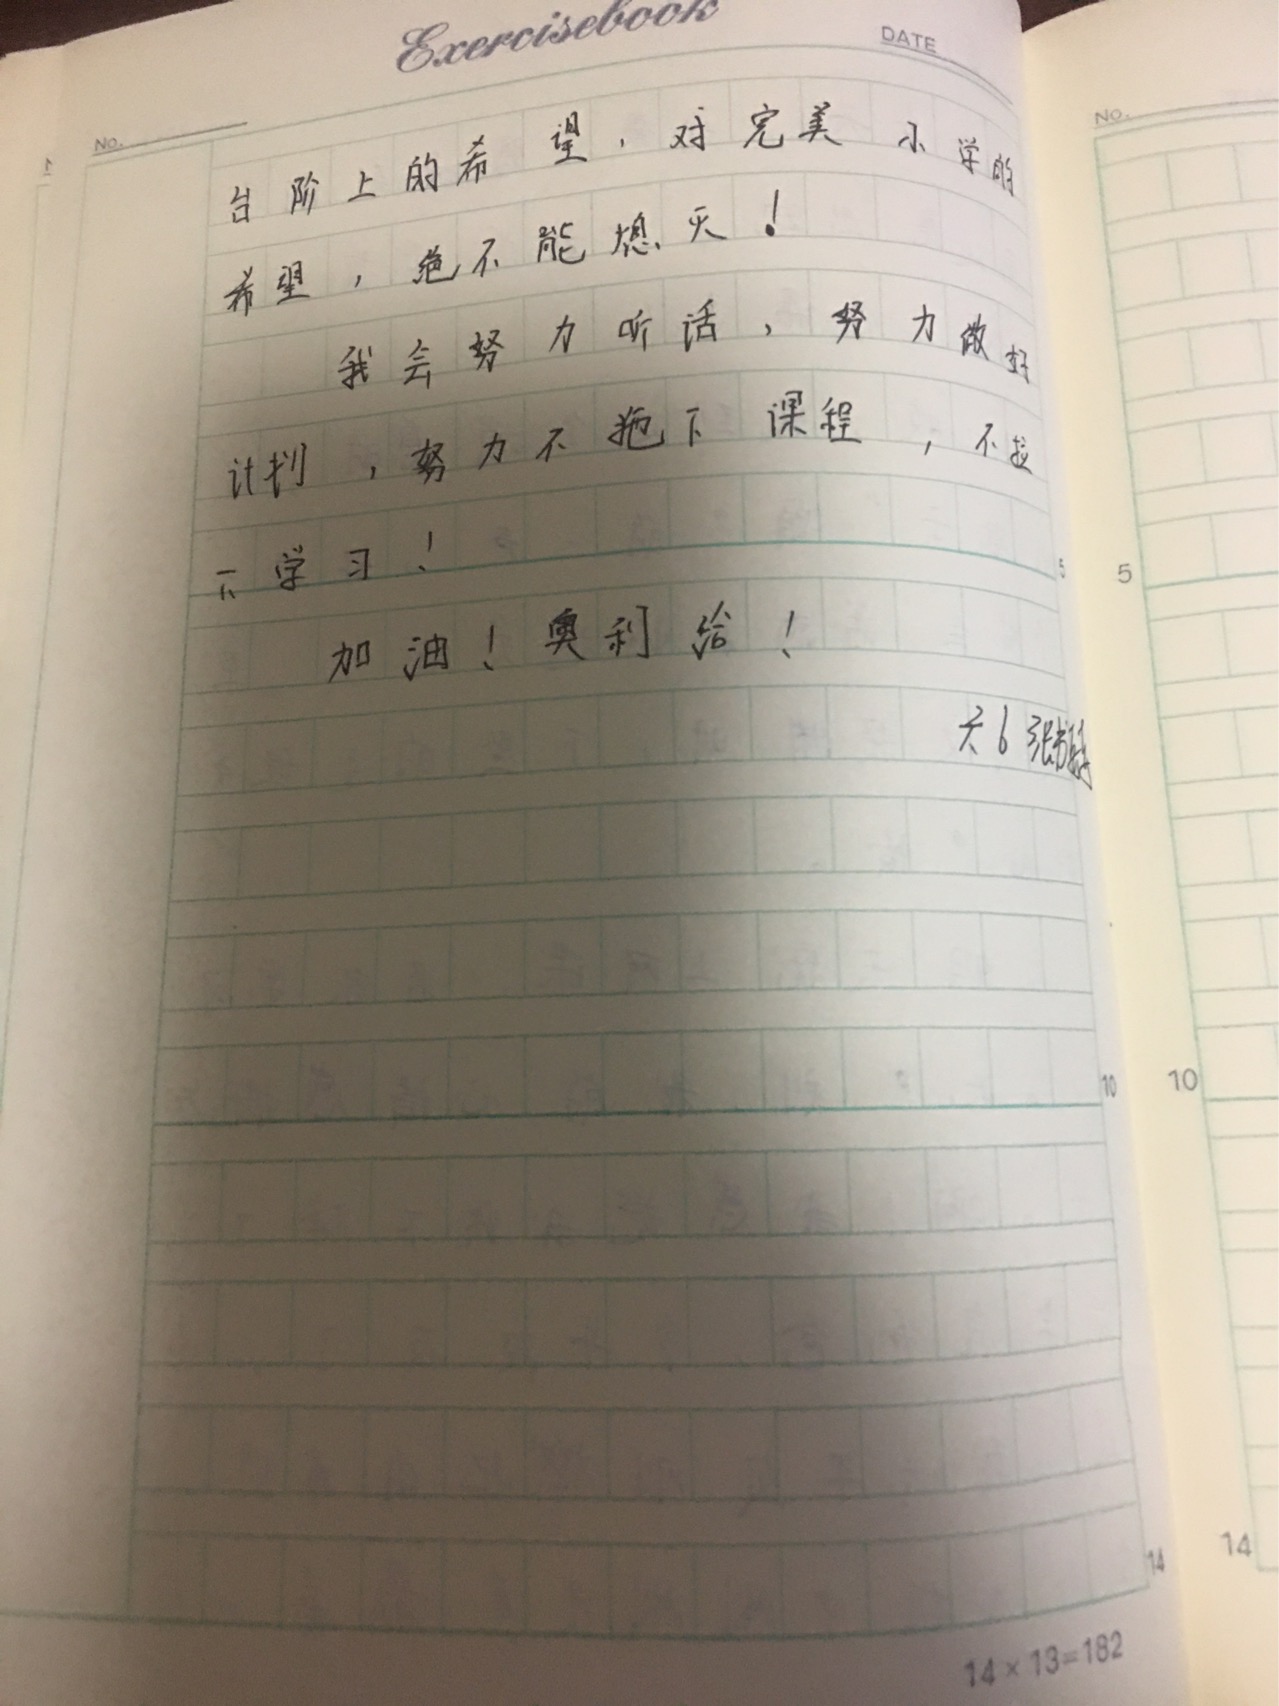 Exercisebook
DATE
No.
台阶上的希望，对完美小学的
希望，绝不能熄灭！
我会努力听话，努力做好
计划，努力不拖下课程，不拉
下学习！
加油！奥利给！
六6 张
5
10
14
14×13=182
No.
5
10
14